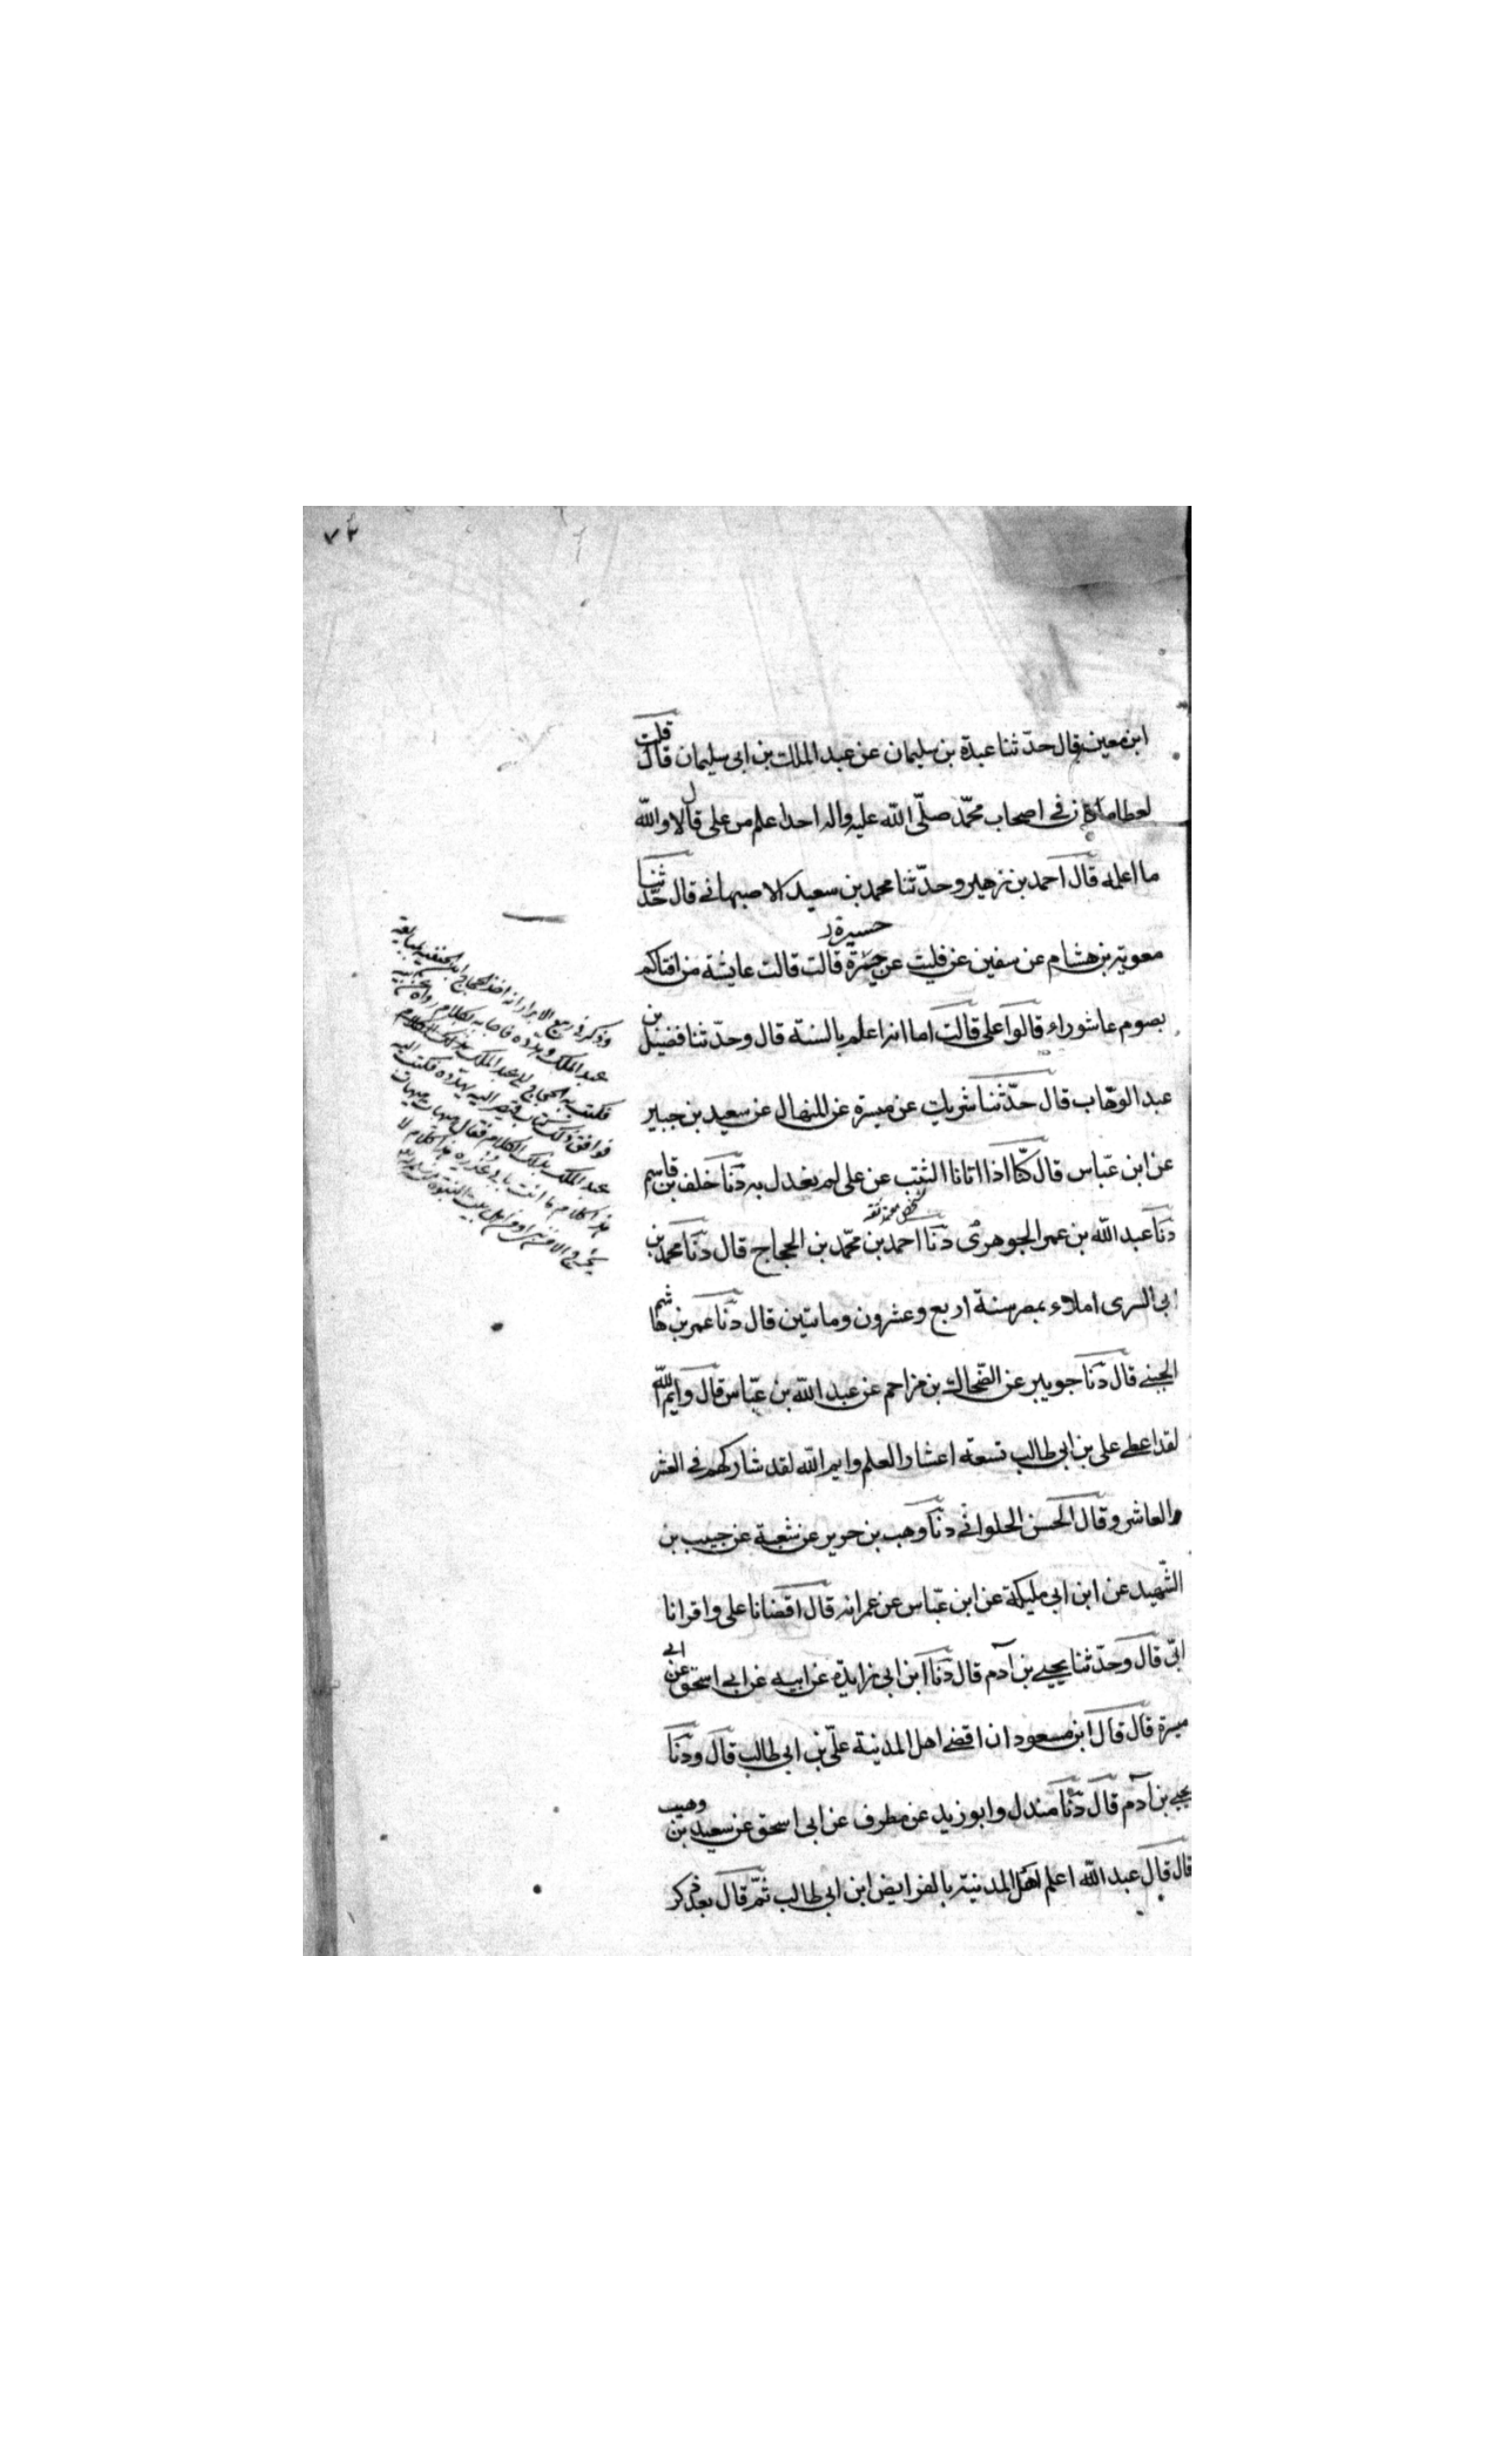 ٧٤
ابن معين قال حدّثنا عبدة بن سليمان عن عبد الملك بن ابى سليمان قال قلت
لعطا اكان فى اصحاب محمّد صلّى الله عليه واله احدا علم من على قال لا والله
ما اعلمه قال احمد بن زهير وحدّثنا محمد بن سعيد الاصبهانى قال حدّثنا
معوية بن هشام عن سفين عن فليت عن جسرة قالت قالت عايشة من افتاكم
بصوم عاشوراء قالوا على قالت اما انه اعلم بالسنة قال وحدّثنا فضيل بن
عبد الوهّاب قال حدّثنا شريك عن ميسرة عن المنهال عن سعيد بن جبير
عن ابن عبّاس قال كنّا اذا اتانا الثبت عن على لم نعدل به دنا خلف بن قاسم
دنا عبد الله بن عمر الجوهرى دنا احمد بن محمّد بن الحجاج قال دنا محمد بن
ابى السرى املاء بمصر سنة اربع وعشرون وماتين قال دنا عمر بن هاشم
الجنبى قال دنا جويبر عن الضّحاك بن مزاحم عن عبد الله بن عبّاس قال وايم الله
لقد اعطى على بن ابى طالب تسعة اعشار العلم وايم الله لقد شاركهم فى العشر
العاشر وقال الحسن الحلوانى دنا وهب بن جرير عن شعبة عن حبيب بن
الشّهيد عن ابن ابى مليكة عن ابن عبّاس عن عمر انه قال اقضانا على واقرانا
ابىّ قال وحدّثنا يحيى بن آدم قال دنا ابن ابى زايدة عن ابيه عن ابى اسحق عن ابى
ميسرة قال قال ابن مسعود ان اقضى اهل المدينة علىّ بن ابى طالب قال ودنا
يحيى بن آدم قال دنا مندل وابو زيد عن مطرف عن ابى اسحق عن سعيد بن وهب
قال قال عبد الله اعلم اهل المدينة بالفرايض ابن ابى طالب ثمّ قال بعد ذكر
وذكر فى ربيع الابرار انه
عبد الملك
فكتب به الحجاج الى عبد الملك
فوافق ذلك كتاب قيصر اليه يهدّده فكتب اليه
عبد الملك بذلك الكلام فقال هيهات هيهات